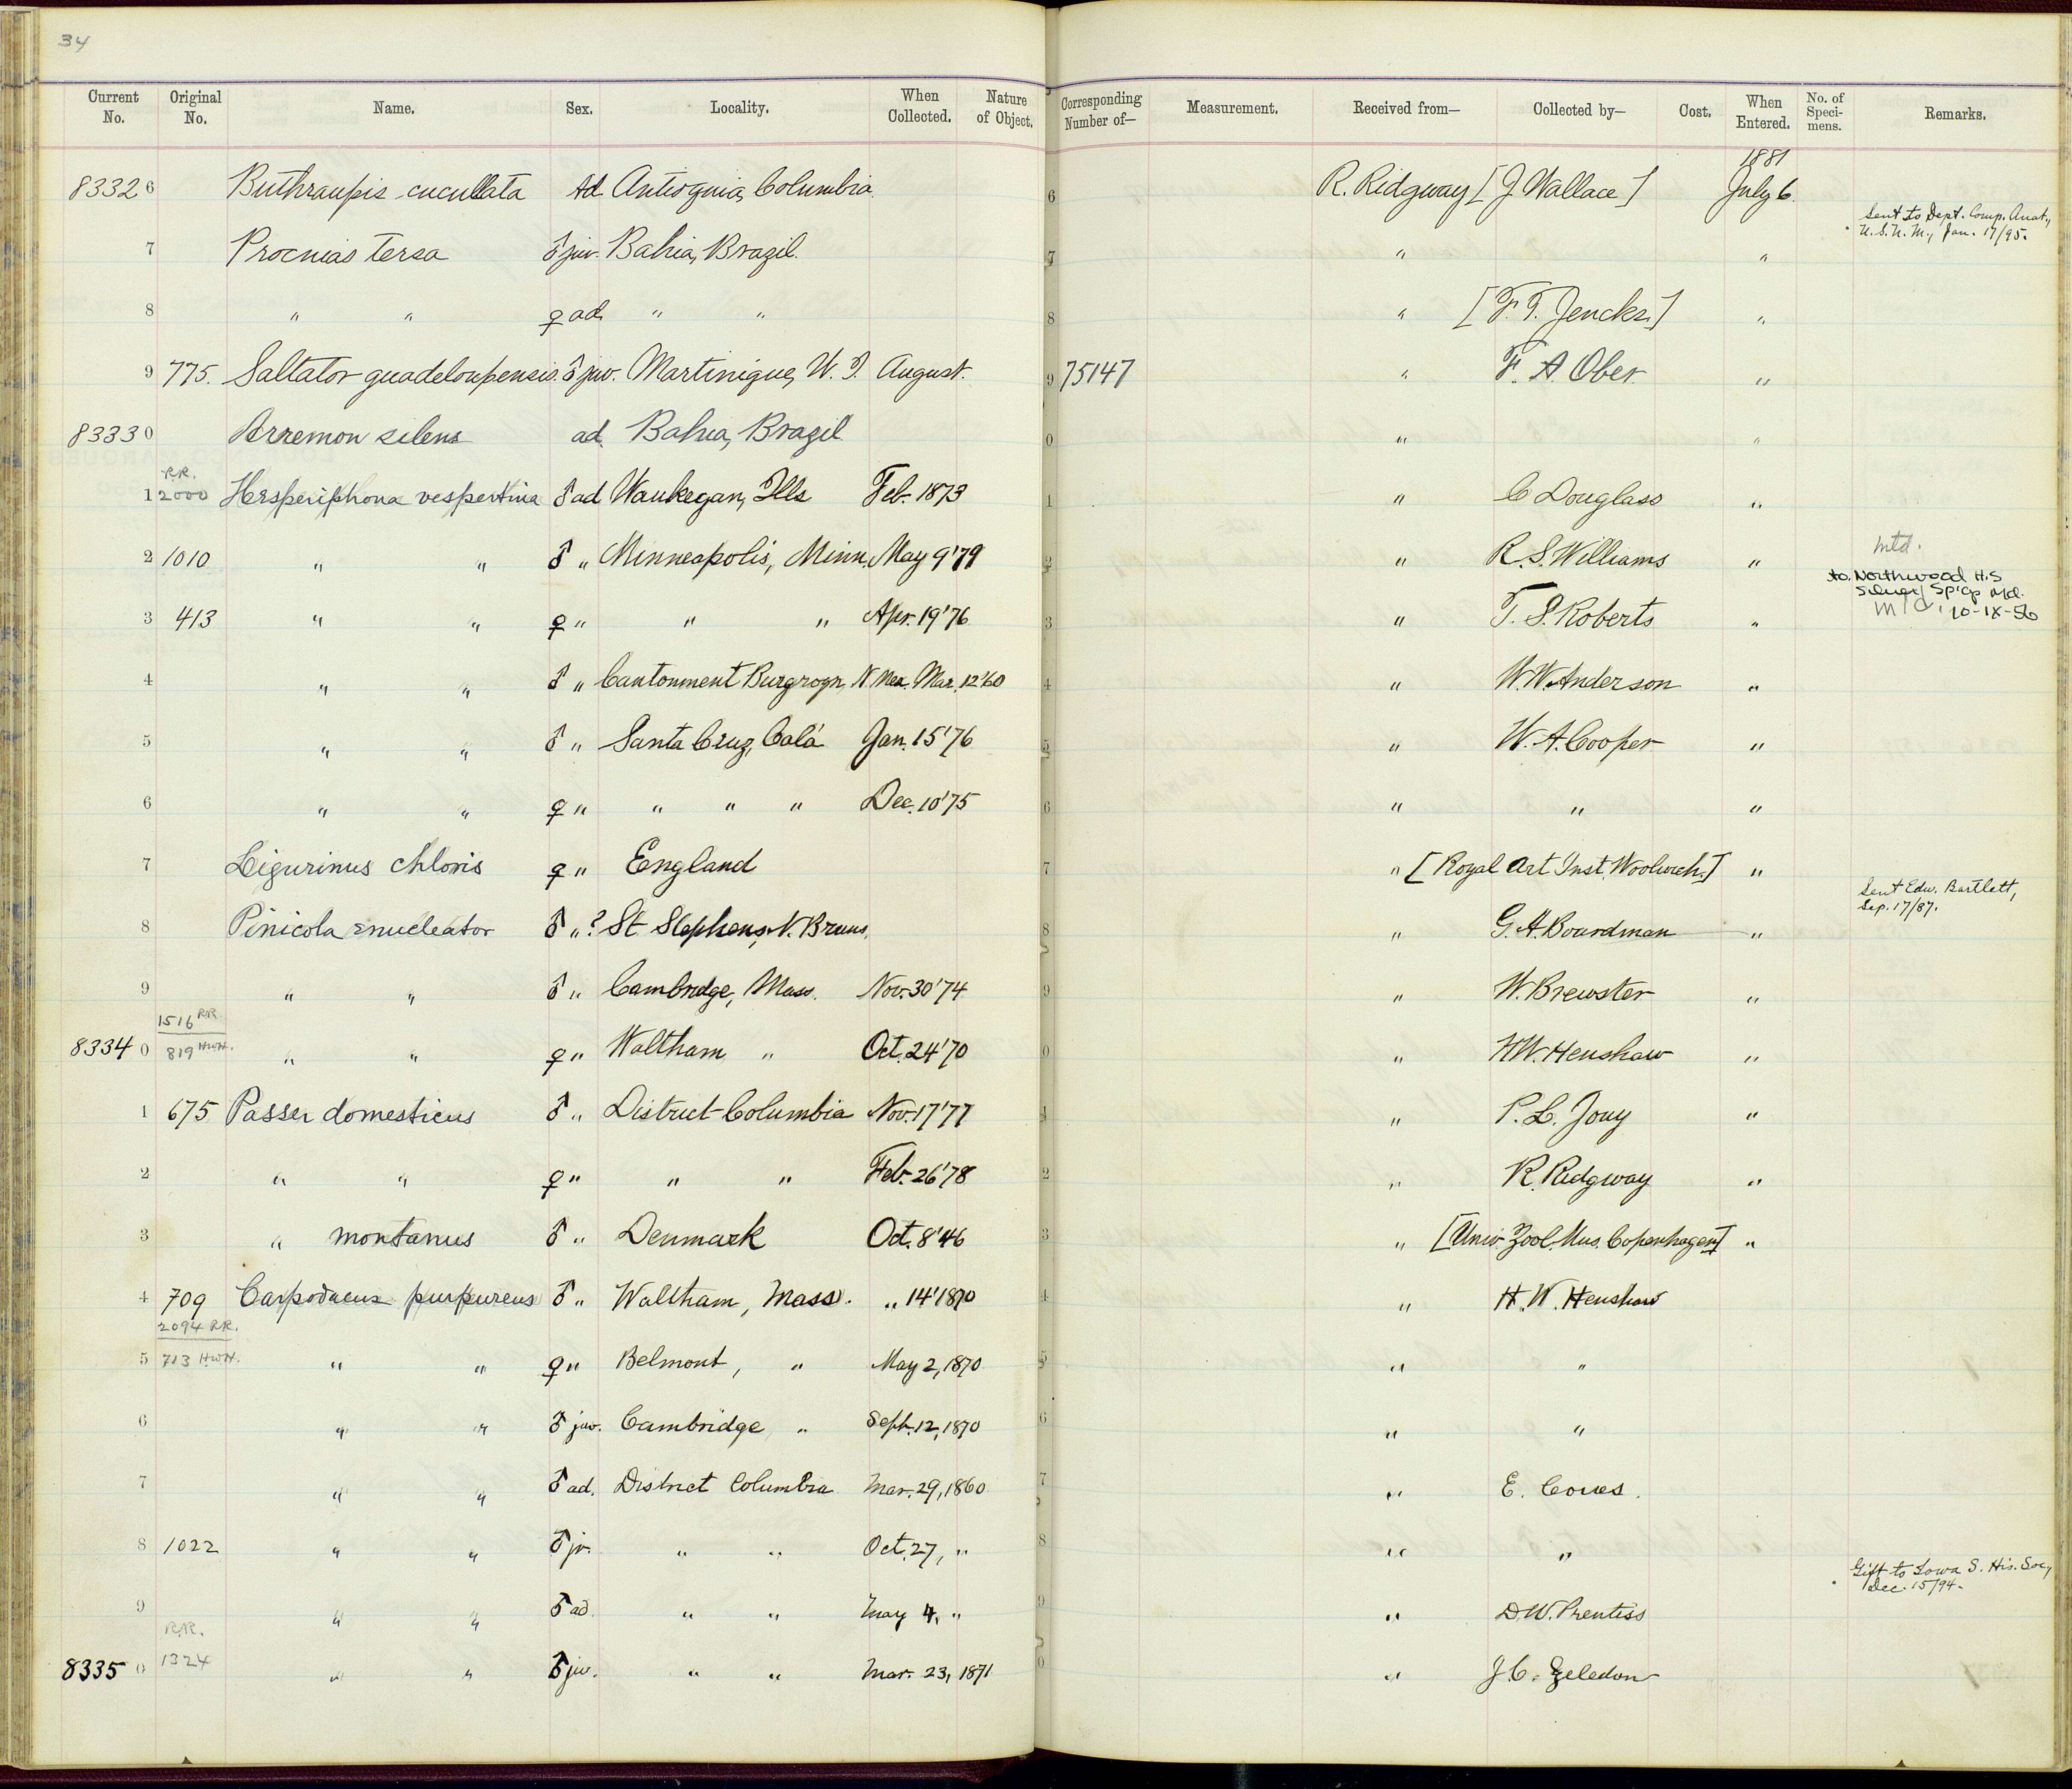 34
Current No. Original No. Name. Sex. Locality. When Collected. Nature of Object. Corresponding Number of— Measurement. Received from— Collected by— Cost. When Entered. No. of Specimens. Remarks.
83326 Buthraupis cucullata Ad. Antioquia, Columbia. 6 R. Ridgway [J Wallace] 1881 July 6.
7 Procnias tersa ♂ juv. Bahia, Brazil. 7 " " Sent to Dept. Comp. Anat., U.S.N.M., Jan. 17/95.
8 " " ♀ ad. " " 8 " [F. T. Jencks.] "
9 775. Saltator guadeloupensis. ♂ juv. Martinique, W. I. August. 9 75147 " F. A. Ober. "
83330 Arremon silens ad. Bahia, Brazil 0 " "
1 R.R. 2000 Hesperiphona vespertina ♂ ad Waukegan, Ills Feb. 1873 1 " C Douglass "
2 1010 " " ♂ " Minneapolis, Minn. May 9 '79 2 " R. S. Williams " mtd.
3 413 " " ♀ " " " Apr. 19 '76 3 " T. S. Roberts " to Northwood H.S Silver Sp'gs Md. 10-IX-56
4 " " ♂ " Cantonment Burgwyn, N. Mex. Mar. 12 '60 4 " W. W. Anderson "
5 " " ♂ " Santa Cruz, Cala Jan. 15 '76 5 " W. A. Cooper "
6 " " ♀ " " " " Dec. 10 '75 6 " " "
7 Ligurinus chloris ♀ " England 7 " [Royal Art Inst. Woolwich.] "
8 Pinicola enucleator ♂ " ? St. Stephens, N. Bruns. 8 " G. A. Boardman " Sent Edw. Bartlett, Sep. 17/87.
9 " " ♂ " Cambridge, Mass. Nov. 30 '74 9 " W. Brewster "
83340 1516 RR 819 HWH. " " ♀ " Waltham " Oct. 24 '70 0 " H W. Henshaw "
1 675 Passer domesticus ♂ " District Columbia Nov. 17 '77 1 " P. L. Jouy "
2 " " ♀ " " " Feb. 26 '78 2 " R. Ridgway "
3 " montanus ♂ " Denmark Oct. 8 '46 3 " [Univ. Zool. Mus. Copenhagen] "
4 709 Carpodacus purpureus ♂ " Waltham, Mass. " 14 1870 4 " H. W. Henshaw
5 2094 RR. 713 H.W.H. " " ♀ " Belmont, " May 2, 1870 5 " "
6 " " ♂ juv. Cambridge " Sept. 12, 1870 6 " "
7 " " ♂ ad. District Columbia Mar. 29, 1860 7 " E. Coues.
8 1022 " " ♂ jv. " " Oct. 27, " 8 " "
9 " " ♂ ad. " " May 4, " 9 " D. W. Prentiss Gift to Iowa S. His. Soc., Dec. 15/94.
83350 R.R. 1324 " " ♂ juv. " " Mar. 23, 1871 0 " J. C. Zeledon